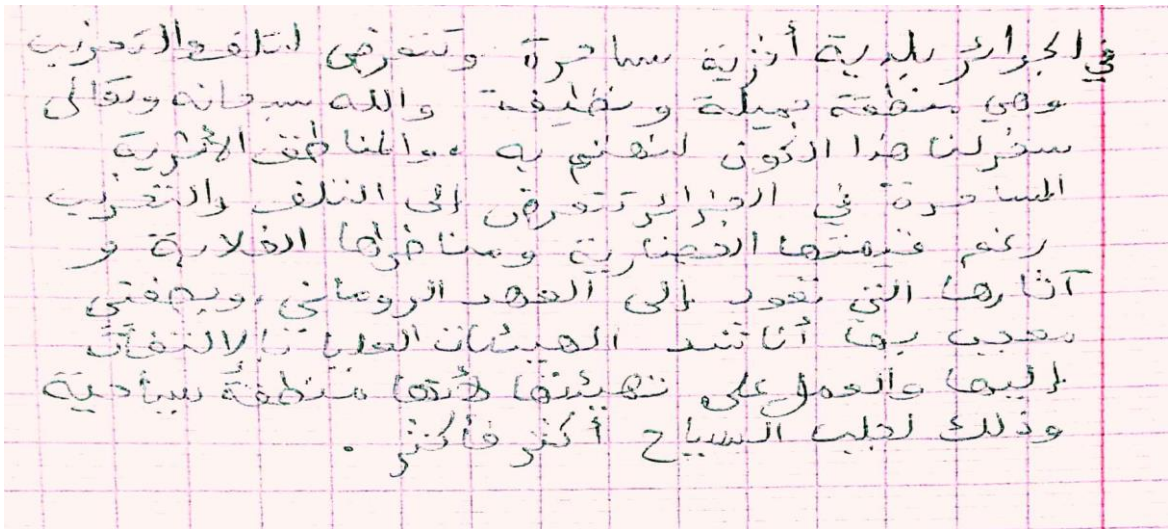 في الجزائر بلدية أثرية ساحرة وتتعرض لتلف والتخريب
وهي منطقة جميلة ونظيفة والله سبحانه وتعالى
سخر لنا هذا الكون لنهتم به ،والمناطق الأثرية
الساحرة في الجزائر تتعرض إلى التلف والتخريب
رغم قيمتها الحضارية ومناظرها الخلابة و
آثارها التي تعود إلى العهد الروماني ،وبصفتي
معجب بها أناشد الهيئات العليا بالإلتفات
إليها والعمل على تهيئتها لأنها منطقة سياحية
وذلك لجلب السياح أكثر فأكثر .